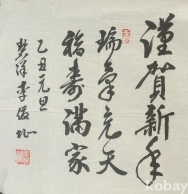 謹賀新年
瑞氣先天
福壽滿家
乙丑元旦
kobay